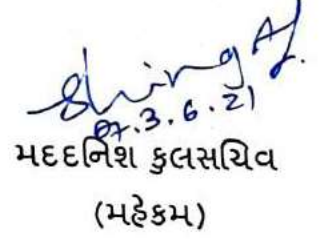 તા.3.6.21
મદદનિશ કુલસચિવ
(મહેકમ)